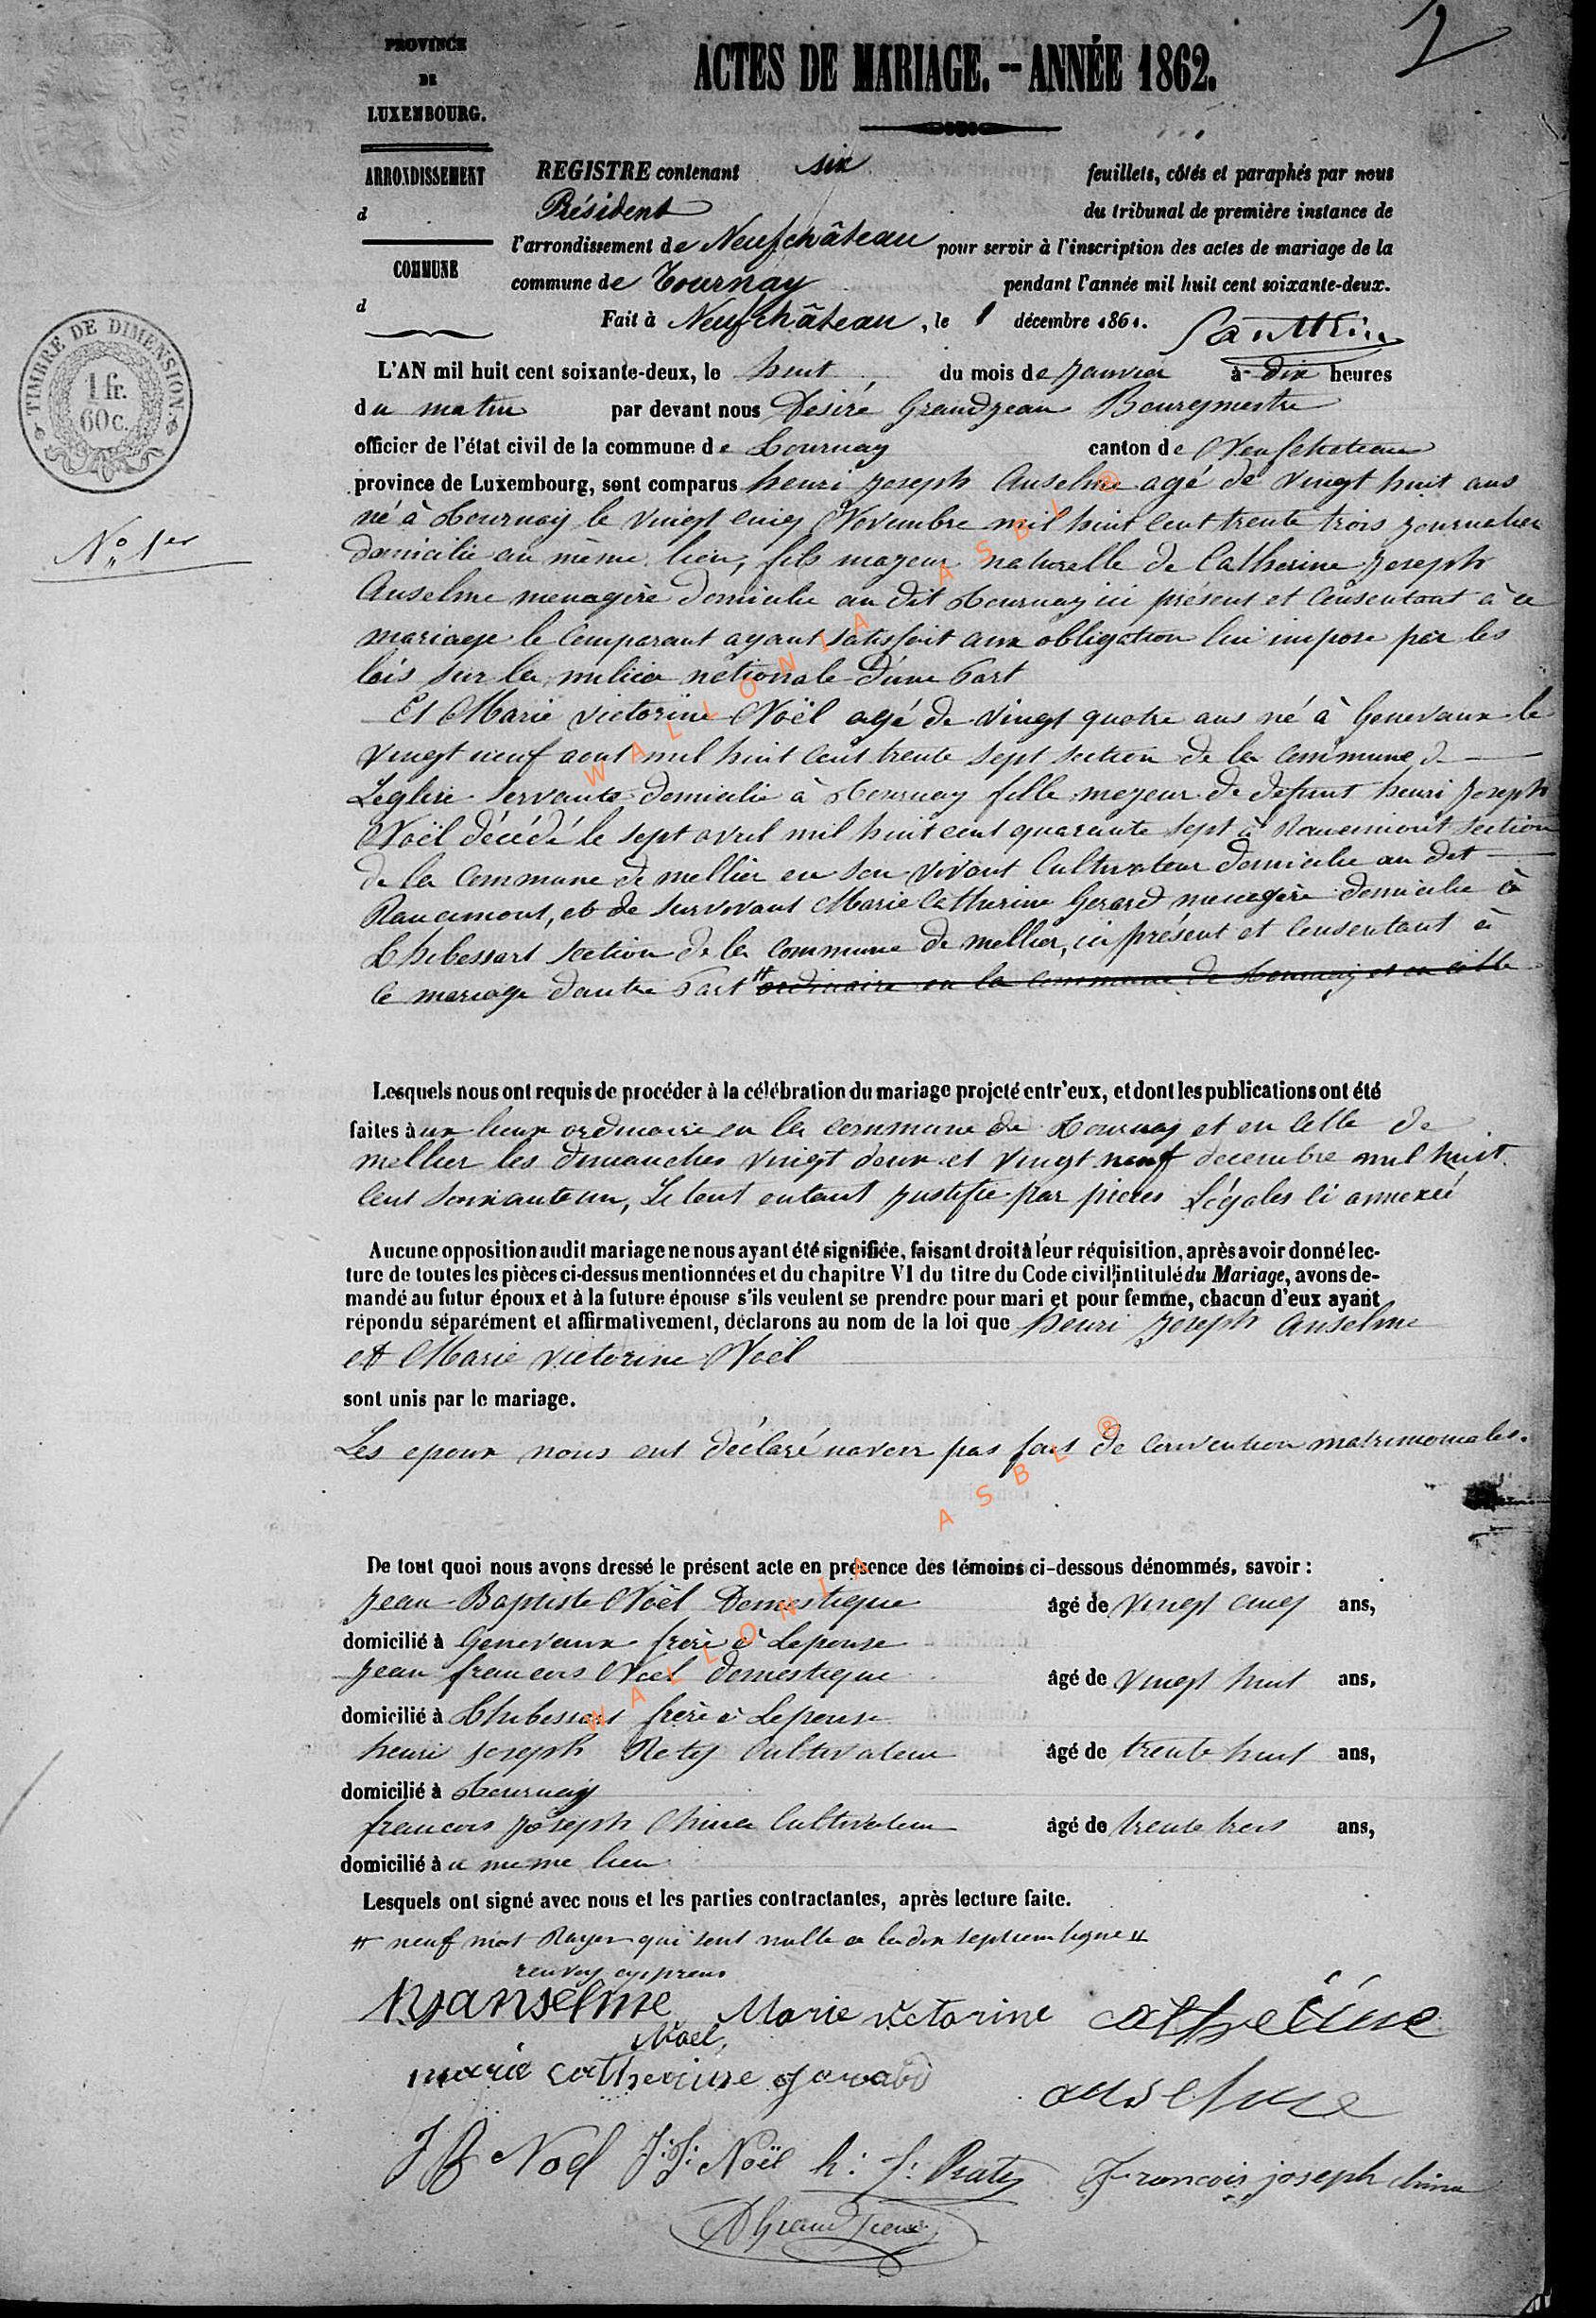 2
PROVINCE
DE
LUXEMBOURG.
ACTES DE MARIAGE. -- ANNÉE 1862.
ARRONDISSEMENT
d
COMMUNE
d
REGISTRE contenant six feuillets, côtés et paraphés par nous
Président du tribunal de première instance de
l'arrondissement de Neufchâteau pour servir à l'inscription des actes de mariage de la
commune de Tournay pendant l'année mil huit cent soixante-deux.
Fait à Neufchâteau, le 1 décembre 1861.
TIMBRE DE DIMENSION
1 fr.
60 c.
L'AN mil huit cent soixante-deux, le huit du mois de Janvier à dix heures
du matin par devant nous Désiré Grandjean Bourgmestre
officier de l'état civil de la commune de Tournay canton de Neufchateau
province de Luxembourg, sont comparus henri joseph Anselme agé de vingt huit ans
N° 1er
né à Tournay le vingt cinq Novembre mil huit cent trente trois journalier
domicilié au même lieu, fils mageur naturelle de Catherine joseph
Anselme menagère domicilie au dit Tournay ici présent et consentant à ce
mariage le comparant ayant satisfait aux obligation lui impose par les
lois sur la milice nationale d'une Part
Et Marie victorine Noël agé de vingt quatre ans né à Genevaux le
vingt neuf aout mil huit cent trente sept section de la commune de
Léglise servante domicilie à Tournay fille mageur de defunt henri joseph
Noël décédé le sept avril mil huit cent quarante sept à Rancimont section
de la commune de mellier en son vivant Cultivateur domicilie au dit
Rancimont, et de survivant Marie Catherine Gerard menagère domicilie à
Thibessart section de la commune de mellier, ici présent et consentant à
ce mariage d'autre Part # ordinaire en la commune de Tournay et en celle
Lesquels nous ont requis de procéder à la célébration du mariage projeté entr'eux, et dont les publications ont été
faites aux lieux ordinaire en la commune de Tournay et en celle de
mellier les dimanches vingt deux et vingt neuf decembre mil huit
cent soixante un, Le tout entant justifie par pieces Légales ci annexeé
Aucune opposition audit mariage ne nous ayant été signifiée, faisant droit à leur réquisition, après avoir donné lec-
ture de toutes les pièces ci-dessus mentionnées et du chapitre VI du titre du Code civil, intitulé du Mariage, avons de-
mandé au futur époux et à la future épouse s'ils veulent se prendre pour mari et pour femme, chacun d'eux ayant
répondu séparément et affirmativement, déclarons au nom de la loi que henri joseph Anselme
et Marie victorine Noël
sont unis par le mariage.
Les epoux nous ont déclaré navoir pas fait de convention matrimoniales.
De tout quoi nous avons dressé le présent acte en présence des témoins ci-dessous dénommés, savoir :
Jean Baptiste Noël Domestique âgé de vingt cinq ans,
domicilié à Genevaux frère à Lepouse
Jean francois Noël domestique âgé de vingt huit ans,
domicilié à Thibessart frère à Lepouse
henri joseph Raty Cultivateur âgé de trente huit ans,
domicilié à Tournay
francois joseph China Cultivateur âgé de trente trois ans,
domicilié à u meme lieu
Lesquels ont signé avec nous et les parties contractantes, après lecture faite.
# neuf mot Rayer qui sont nulle a la dix septieme ligne #
hjanselme Marie victorine catherine
Noël,
marie catherine gerard anselme
J B Noel J: F: Noël h: J: Raty Francois joseph china
D Grandjean
WALLONIA ASBL ®
WALLONIA ASBL ®